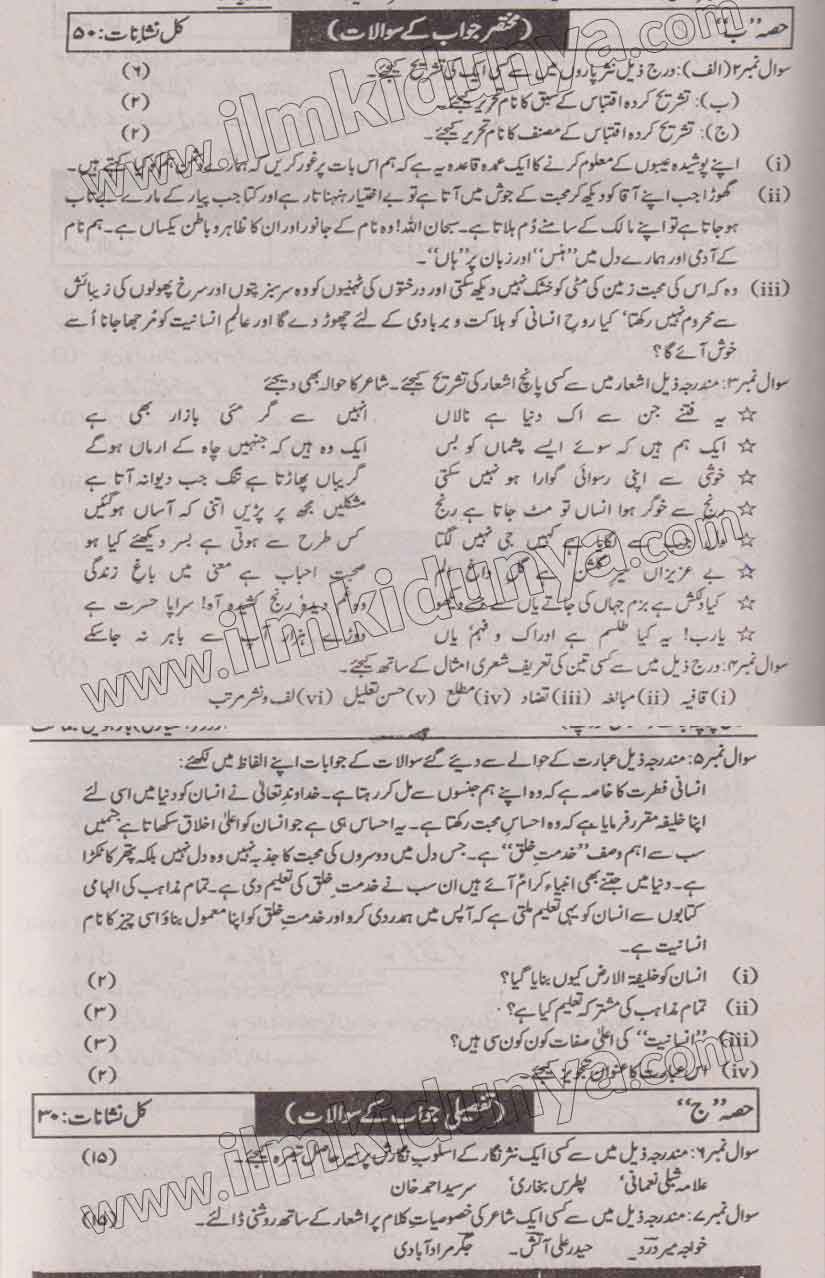 حصہ "ب" (مختصر جواب کے سوالات) کل نشانات: ۵۰
سوال نمبر۲ (الف): درج ذیل نثر پاروں میں سے کسی ایک کی تشریح کیجئے۔ (۶)
(ب): تشریح کردہ اقتباس کے سبق کا نام تحریر کیجئے۔ (۲)
(ج): تشریح کردہ اقتباس کے مصنف کا نام تحریر کیجئے۔ (۲)
(i) اپنے پوشیدہ عیبوں کے معلوم کرنے کا ایک عمدہ قاعدہ یہ ہے کہ ہم اس بات پر غور کریں کہ ہمارے دشمن ہم کو کیا کہتے ہیں۔
(ii) گھوڑا جب اپنے آقا کو دیکھ کر محبت کے جوش میں آتا ہے تو بے اختیار ہنہناتا رہے اور کتا جب پیار کے مارے بے تاب
ہو جاتا ہے تو اپنے مالک کے سامنے دُم ہلاتا ہے۔ سبحان اللہ! وہ نام کے جانور اور ان کا ظاہر و باطن یکساں ہے۔ ہم نام
کے آدمی اور ہمارے دل میں "ہنس" اور زبان پر "ہاں"۔
(iii) وہ کہ اس کی محبت زمین کی مٹی کو خشک نہیں دیکھ سکتی اور درختوں کی ٹہنیوں کو وہ سرسبز پتوں اور سرخ پھولوں کی زیبائش
سے محروم نہیں رکھتا، کیا روحِ انسانی کو ہلاکت و بربادی کے لئے چھوڑ دے گا اور عالمِ انسانیت کو مُرجھا جانا اُسے
خوش آئے گا؟
سوال نمبر۳: مندرجہ ذیل اشعار میں سے کسی پانچ اشعار کی تشریح کیجئے۔ شاعر کا حوالہ بھی دیجئے
☆ یہ فتنے جن سے اک دنیا ہے نالاں انہیں سے گر مئی بازار بھی ہے
☆ ایک ہم ہیں کہ ہوئے ایسے پشماں کو بس ایک وہ ہیں کہ جنہیں چاہ کے ارماں ہوگے
☆ خوشی سے اپنی رسوائی گوارا ہو نہیں سکتی گریباں پھاڑتا ہے تنگ جب دیوانہ آتا ہے
☆ رنج سے خوگر ہوا انساں تو مٹ جاتا ہے رنج مشکلیں مجھ پر پڑیں اتنی کہ آساں ہوگئیں
☆ دل جب سے لگایا ہے کہیں جی نہیں لگتا کس طرح سے ہوتی ہے بسر دیکھئے کیا ہو
☆ بے عزیزاں سیرِ گلشن ہے گل داغِ الم صحبتِ احباب ہے معنی میں باغِ زندگی
☆ کیا دلکش ہے بزم جہاں کی جاتے یاں سے جسے دیکھو وہ غم دیدہ رنج کشیدہ آہ! سراپا حسرت ہے
☆ یارب! یہ کیا طلسم ہے ادراک و فہم یاں دوڑے ہزار آپ سے باہر نہ جاسکے
سوال نمبر۴: درج ذیل میں سے کسی تین کی تعریف شعری امثال کے ساتھ کیجئے۔
(i) قافیہ (ii) مبالغہ (iii) تضاد (iv) مطلع (v) حسن تعلیل (vi) لف و نشر مرتب
سوال نمبر۵: مندرجہ ذیل عبارت کے حوالے سے دیئے گئے سوالات کے جوابات اپنے الفاظ میں لکھئے:
انسانی فطرت کا خاصہ ہے کہ وہ اپنے ہم جنسوں سے مل کر رہتا ہے۔ خداوندِ تعالیٰ نے انسان کو دنیا میں اسی لئے
اپنا خلیفہ مقرر فرمایا ہے کہ وہ احساسِ محبت رکھتا ہے۔ یہ احساس ہی ہے جو انسان کو اعلیٰ اخلاق سکھاتا ہے جسمیں
سب سے اہم وصف "خدمتِ خلق" ہے۔ جس دل میں دوسروں کی محبت کا جذبہ نہیں وہ دل نہیں بلکہ پتھر کا ٹکڑا
ہے۔ دنیا میں جتنے بھی انبیاء کرامؑ آئے ہیں ان سب نے خدمتِ خلق کی تعلیم دی ہے۔ تمام مذاہب کی الہامی
کتابوں سے انسان کو یہی تعلیم ملتی ہے کہ آپس میں ہمدردی کرو اور خدمتِ خلق کو اپنا معمول بناؤ اسی چیز کا نام
انسانیت ہے۔
(i) انسان کو خلیفۃ الارض کیوں بنایا گیا؟ (۲)
(ii) تمام مذاہب کی مشترکہ تعلیم کیا ہے؟ (۳)
(iii) "انسانیت" کی اعلیٰ صفات کون کون سی ہیں؟ (۳)
(iv) اس عبارت کا عنوان تجویز کیجئے۔ (۲)
حصہ "ج" (تفصیلی جواب کے سوالات) کل نشانات: ۳۰
سوال نمبر۶: مندرجہ ذیل میں سے کسی ایک نثر نگار کے اسلوب نگارش پر سیر حاصل تبصرہ کیجئے۔ (۱۵)
علامہ شبلی نعمانی، پطرس بخاری، سر سید احمد خان
سوال نمبر۷: مندرجہ ذیل میں سے کسی ایک شاعر کی خصوصیاتِ کلام پر اشعار کے ساتھ روشنی ڈالئے۔ (۱۵)
خواجہ میر درد۔ حیدر علی آتش۔ جگر مراد آبادی
www.ilmkidunya.com
www.ilmkidunya.com
www.ilmkidunya.com
www.ilmkidunya.com